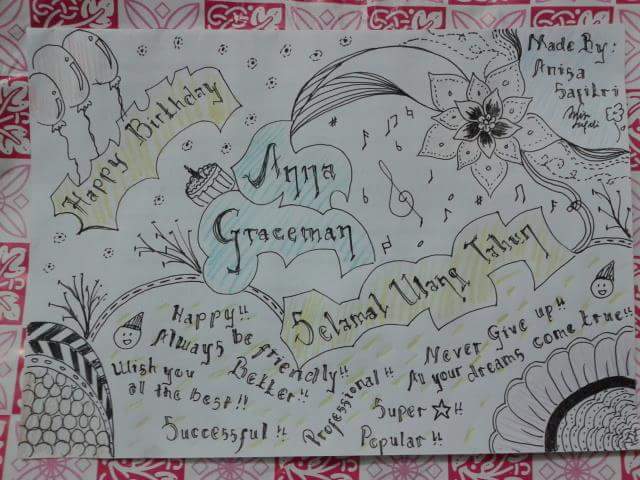 Made By:
Anisa
Safitri
Happy Birthday
Anna
Graceman
Selamat Ulang Tahun
Happy!!
Always be friendly!!
Wish you
all the best!!
Better!!
Successful!!
Professional!!
Never Give up!!
All your dreams come true!!
Super ☆!!
Popular!!